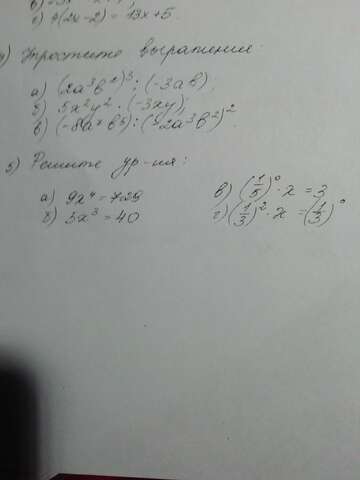 б) 7(2x-2) = 13x+5.
4) Упростите выражения:
а) (2a³b²)³ : (-3ab);
б) 5x²y² · (-3xy);
в) (-8a⁷b⁵) : (-2a³b²)².
5) Решите ур-ния:
а) 9x⁴ = 729 в) (1/5)⁰ · x = 3
б) 5x³ = 40 г) (1/3)² · x = (1/3)⁰